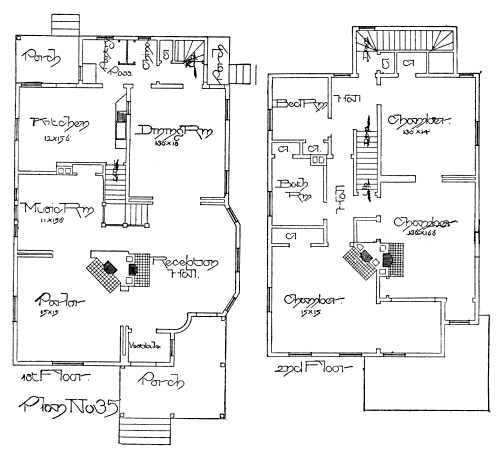 Porch
Pass.
Kitchen
12x156
Dining Rm.
136x18
Music Rm
11x156
Reception
Hall.
Parlor
15x15
Vestibule
Porch
1st Floor.
Plan No 35
Cl
Cl
Bed Rm
Hall
Chamber.
136x14
Cl.
Cl.
Bath
Rm
Hall
Chamber
136x166
Cl
Chamber.
15x15
2nd Floor